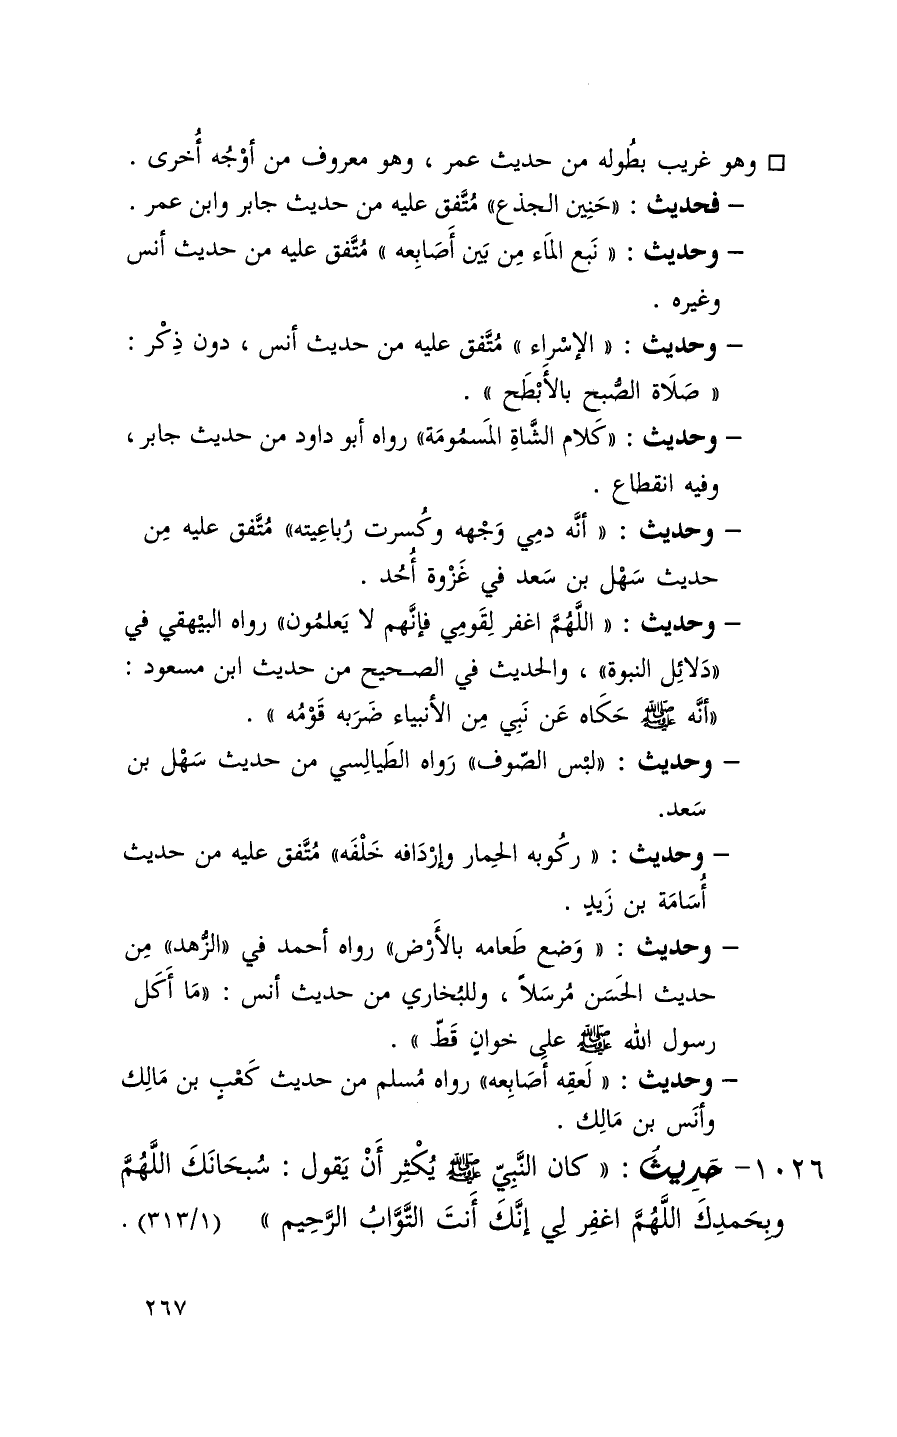 □ وهو غريب بطُوله من حديث عمر ، وهو معروف من أوْجُه أُخرى .
– فحديث : «حَنِين الجذع» مُتَّفق عليه من حديث جابر وابن عمر .
– وحديث : « نَبع المَاء مِن بَين أَصَابِعه » مُتَّفق عليه من حديث أنس
وغيره .
– وحديث : « الإسْراء » مُتَّفق عليه من حديث أنس ، دون ذِكْر :
« صَلَاة الصُّبح بالأَبْطَح » .
– وحديث : «كَلام الشَّاةِ المَسمُومَة» رواه أبو داود من حديث جابر ،
وفيه انقطاع .
– وحديث : « أنَّه دمِي وَجْهه وكُسرت رُباعِيته» مُتَّفق عليه مِن
حديث سَهْل بن سَعد في غَزْوة أُحُد .
– وحديث : « اللَّهُمَّ اغفر لِقَومِي فإنَّهم لا يَعلمُون» رواه البيْهقي في
«دَلائِل النبوة» ، والحديث في الصحيح من حديث ابن مسعود :
«أنَّه ﷺ حَكَاه عَن نَبِي مِن الأنبياء ضَرَبه قَوْمُه » .
– وحديث : «لبْس الصّوف» رَواه الطَيالِسي من حديث سَهْل بن
سَعد.
– وحديث : « ركُوبه الحِمار وإرْدَافه خَلْفَه» مُتَّفق عليه من حديث
أُسَامَة بن زَيدٍ .
– وحديث : « وَضع طَعامه بالأَرْض» رواه أحمد في «الزُّهد» مِن
حديث الحَسَن مُرسَلاً ، وللبُخاري من حديث أنس : «مَا أَكَل
رسول الله ﷺ على خوانٍ قَطّ » .
– وحديث : « لَعقِه أصَابِعه» رواه مُسلم من حديث كَعْبٍ بن مَالِك
وأنَس بن مَالِك .
١٠٢٦– حَدِيثَ : « كان النَّبِيّ ﷺ يُكْثِر أَنْ يَقول : سُبحَانَكَ اللَّهُمَّ
وبِحَمدِكَ اللَّهُمَّ اغفِر لِي إنَّكَ أَنتَ التَّوَّابُ الرَّحِيم » (٣١٣/١) .
٢٦٧